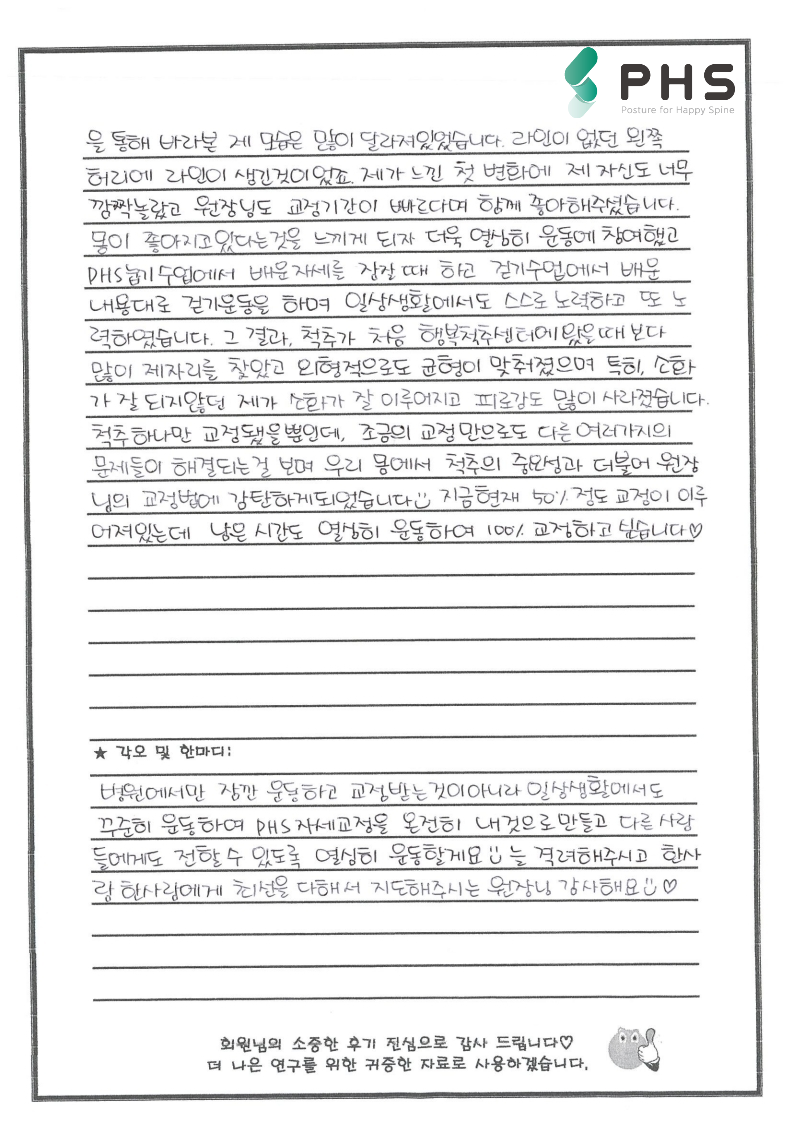 PHS
Posture for Happy Spine
을 통해 바라본 제 모습은 많이 달라져있었습니다. 라인이 없던 왼쪽
허리에 라인이 생긴것이었죠. 제가 느낀 첫 변화에 제 자신도 너무
깜짝놀랐고 원장님도 교정기간이 빠르다며 함께 좋아해주셨습니다.
몸이 좋아지고있다는것을 느끼게 되자 더욱 열심히 운동에 참여했고
PHS눕기수업에서 배운자세를 잠잘때 하고 걷기수업에서 배운
내용대로 걷기운동을 하며 일상생활에서도 스스로 노력하고 또 노
력하였습니다. 그 결과, 척추가 처음 행복척추센터에 왔을때 보다
많이 제자리를 찾았고 외형적으로도 균형이 맞춰졌으며 특히, 소화
가 잘 되지않던 제가 소화가 잘 이루어지고 피로감도 많이 사라졌습니다.
척추하나만 교정됐을뿐인데, 조금의 교정만으로도 다른 여러가지의
문제들이 해결되는걸 보며 우리 몸에서 척추의 중요성과 더불어 원장
님의 교정법에 감탄하게되었습니다 지금현재 50% 정도 교정이 이루
어져있는데 남은 시간도 열심히 운동하여 100% 교정하고 싶습니다♡
★ 각오 및 한마디:
병원에서만 잠깐 운동하고 교정받는것이아니라 일상생활에서도
꾸준히 운동하여 PHS자세교정을 온전히 내것으로만들고 다른 사람
들에게도 전할 수 있도록 열심히 운동할게요 늘 격려해주시고 한사
람 한사람에게 최선을 다해서 지도해주시는 원장님 감사해요 ♡
회원님의 소중한 후기 진심으로 감사 드립니다♡
더 나은 연구를 위한 귀중한 자료로 사용하겠습니다.